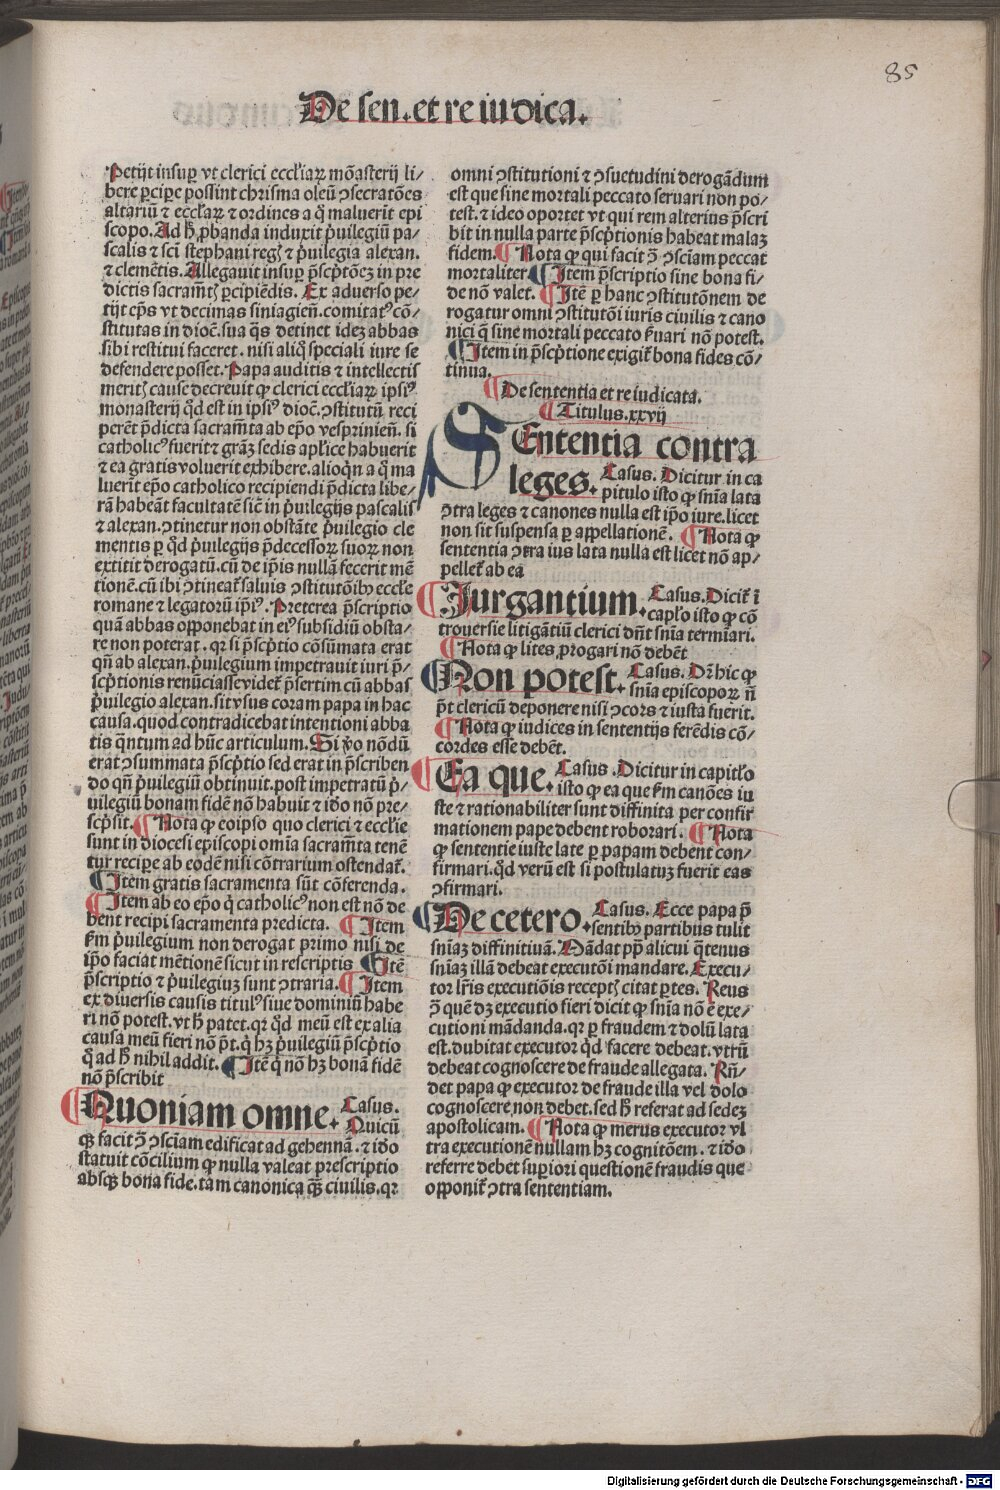 85
De sen. et re iudica.
Petijt insuꝑ vt clerici eccl'iaꝝ mõasterij li/
bere ꝑcipe possint chrisma oleũ ↄsecratões
altariũ ⁊ eccl'iaꝝ ⁊ ordines a q̃ maluerĩt epi
scopo. Ad h̃ ꝓbanda induxit p̃uilegiũ pa/
scalis ⁊ scĩ stephani reg{ ⁊ p̃uilegia alexan.
⁊ clemẽtis. Allegauit insuꝑ p̃scp̃tõeꝫ in pre
dictis sacramẽt{ ꝑcipiẽdis. Ex aduerso pe/
tijt ep̃s vt decimas siniagieñ. comitatꝰ cõ/
stitutas in dioc̃. sua q̃s detinet ideꝫ abbas
sibi restitui faceret. nisi aliq̃ speciali iure se
defendere posset. Papa auditis ⁊ intellectis
merit{ cause decreuit ꝙ clerici eccl'iaꝝ ipsiꝰ
monasterij q̃d est in ipsiꝰ dioc̃. ↄstitutũ reci
perẽt p̃dicta sacramẽta ab ep̃o vesprinieñ. si
catholicꝰ fuerit ⁊ grãꝫ sedis apl'ice habuerit
⁊ ea gratis voluerit exhibere. alioq̃n a q̃ ma
luerit ep̃o catholico recipiendi p̃dicta libe/
rã habeãt facultatẽ sic̃ in p̃uilegijs pascalis
⁊ alexan. ↄtinetur non obstãte p̃uilegio cle
mentis ꝑ q̃d p̃uilegijs p̃decessoꝝ suoꝝ non
extitit derogatũ. cũ de ip̃is nullã fecerit mẽ
tionẽ. cũ ibi ↄtineat̃ saluis ↄstitutõibꝰ eccl'e
romane ⁊ legatorũ ip̃iꝰ. Preterea p̃scriptio
quã abbas opponebat in eiꝰ subsidiũ obsta/
re non poterat. qꝛ si p̃scp̃tio cõsũmata erat
qñ ab alexan. p̃uilegium impetrauit iuri p̃/
scp̃tionis renũciasse videt̃ p̃sertim cũ abbas
p̃uilegio alexan. sit vsus coram papa in hac
causa. quod contradicebat intentioni abba
tis q̃ntum ad hũc articulum. Si ṽo nõdũ
erat ↄsummata p̃scp̃tio sed erat in p̃scriben
do qñ p̃uilegiũ obtinuit. post impetratũ p̃/
uilegiũ bonam fidẽ nõ habuit ⁊ iđo nõ pre/
scp̃sit. Nota ꝙ eoipso quo clerici ⁊ eccl'ie
sunt in diocesi episcopi omia sacramẽta tenẽ
tur recipe ab eodẽ nisi cõtrarium ostendat̃.
Item gratis sacramenta sũt cõferenda.
Item ab eo ep̃o q̃ catholicꝰ non est nõ de
bent recipi sacramenta predicta. Item
ẜm p̃uilegium non derogat primo nisi de
ip̃o faciat mẽtionẽ sicut in rescriptis Itẽ
p̃scriptio ⁊ p̃uilegiuꝫ sunt ↄtraria. Item
ex diuersis causis titulꝰ siue dominiũ habe
ri nõ potest. vt h̃ patet. qꝛ q̃d meũ est ex alia
causa meũ fieri nõ p̃t. q̃ hꝫ p̃uilegiũ p̃scp̃tio
q̃ ad h̃ nihil addit. Itẽ q̃ nõ hꝫ bonã fidẽ
nõ p̃scribit
Quoniam omne. Casus.
Quicũ
qꝫ facit ↄ̃ ↄsciam edificat ad gehennã. ⁊ iđo
statuit cõcilium ꝙ nulla valeat prescriptio
absqꝫ bona fide. tam canonica q̃ꝫ ciuilis. qꝛ
omni ↄstitutioni ⁊ ↄsuetudini derogãdum
est que sine mortali peccato seruari non po/
test. ⁊ ideo oportet vt qui rem alterius p̃scri
bit in nulla parte p̃scp̃tionis habeat malaꝫ
fidem. Nota ꝙ qui facit ↄ̃ ↄsciam peccat
mortaliter. Item p̃scriptio sine bona fi/
de nõ valet. Itẽ ꝑ hanc ↄstitutõnem de
rogatur omni ↄstitutõi iuris ciuilis ⁊ cano
nici q̃ sine mortali peccato ẜuari nõ potest.
Item in p̃scp̃tione exigit̃ bona fides cõ/
tinua.
De sententia et re iudicata.
Titulus. xxvij
SEntentia contra
leges. Casus. Dicitur in ca
pitulo isto ꝙ sñia lata
ↄtra leges ⁊ canones nulla est ip̃o iure. licet
non sit suspensa ꝑ appellationẽ. Nota ꝙ
sententia ↄtra ius lata nulla est licet nõ ap/
pellet̃ ab ea
Iurgantium. Casus. Dicit̃ ĩ
capl'o isto ꝙ cõ
trouersie litigãtiũ clerici dñt sñia termiari.
Nota ꝙ lites ꝓrogari nõ debẽt
Non potest. Casus. Dr̃ hic ꝙ
sñia episcopoꝝ ñ
p̃t clericũ deponere nisi ↄcors ⁊ iusta fuerit.
Nota ꝙ iudices in sententijs ferẽdis cõ/
cordes esse debẽt.
Ea que. Casus. Dicitur in capitl'o
isto ꝙ ea que ẜm canões iu
ste ⁊ rationabiliter sunt diffinita per confir
mationem pape debent roborari. Nota
ꝙ sententie iuste late ꝑ papam debent con/
firmari. q̃d verũ est si postulatuꝫ fuerit eas
ↄfirmari.
De cetero. Casus. Ecce papa p̃
sentibꝰ partibus tulit
sñiaꝫ diffinitiuã. Mãdat ꝑp̃ alicui q̃tenus
sñiaꝫ illã debeat executõi mandare. Execu/
tor lr̃is executiõis recept{ citat ꝑtes. Reus
ↄ̃ quẽ dꝫ executio fieri dicit ꝙ sñia nõ ẽ exe/
cutioni mãdanda. qꝛ ꝑ fraudem ⁊ dolũ lata
est. dubitat executor q̃d facere debeat. vtrũ
debeat cognoscere de fraude allegata. Rñ/
det papa ꝙ executor de fraude illa vel dolo
cognoscere non debet. sed h̃ referat ad sedeꝫ
apostolicam. Nota ꝙ merus executor vl
tra executionẽ nullam hꝫ cognitõem. ⁊ iđo
referre debet suꝑiori questionẽ fraudis que
opponit̃ ↄtra sententiam.
Digitalisierung gefördert durch die Deutsche Forschungsgemeinschaft - DFG